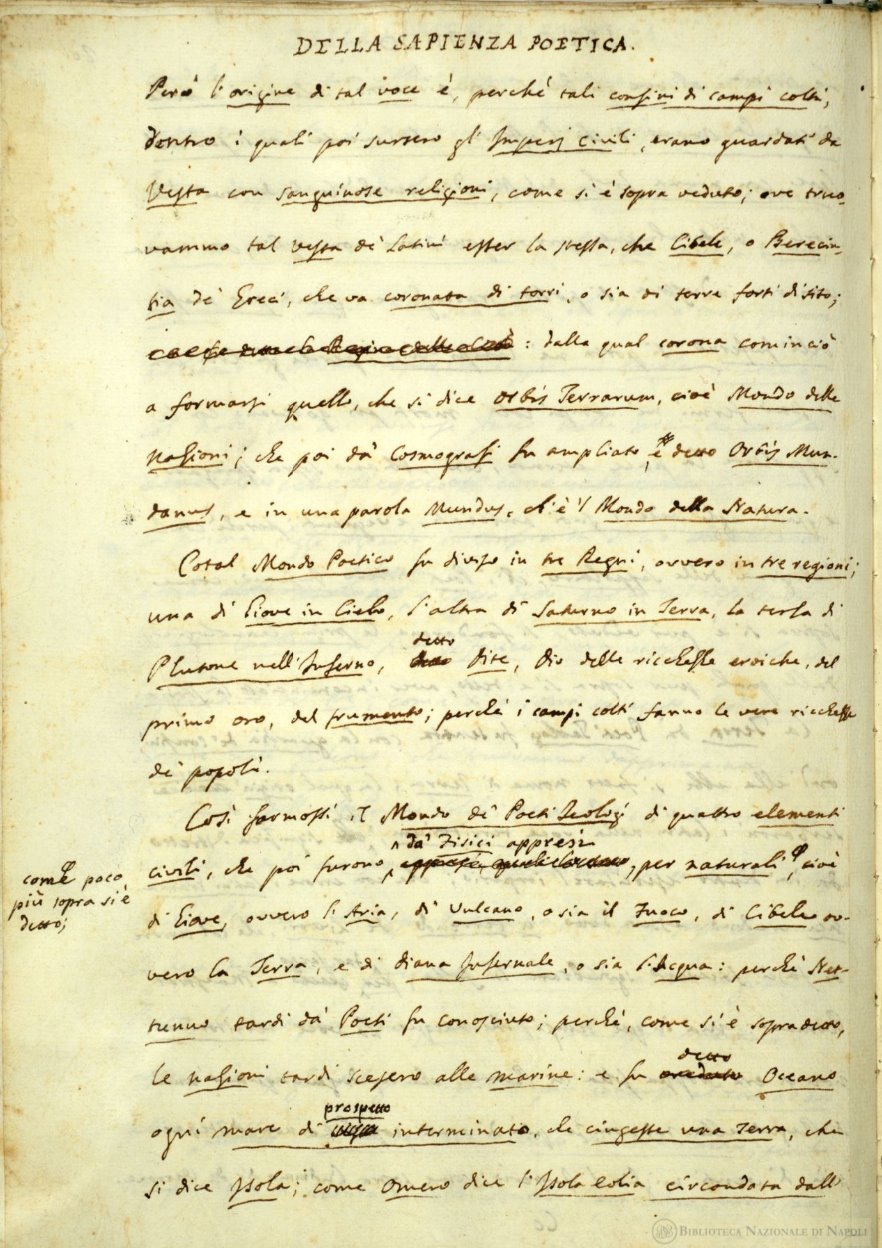 DELLA SAPIENZA POETICA.
Però l'origine di tal voce è, perché tali confini di campi colti,
dentro i quali poi sursero gl'Imperj civili, erano guardati da
Vesta con sanguinose religioni, come si è sopra veduto; ove truo-
vammo tal Vesta de' Latini esser la stessa, che Cibele, o Berecin-
tia de' Greci, che va coronata di torri, o sia di terre forti di sito;
: dalla qual corona cominciò
a formarsi quello, che si dice Orbis Terrarum, cioè Mondo delle
Nazioni; che poi da' Cosmografi fu ampliato, e detto Orbis Mun-
danus, e in una parola Mundus, ch'è 'l Mondo della Natura.
Cotal Mondo Poetico fu diviso in tre Regni, ovvero in tre regioni;
una di Giove in Cielo, l'altra di Saturno in Terra, la terza di
Plutone nell'Inferno, detto Dite, Dio delle ricchezze eroiche, del
primo oro, del frumento; perché i campi colti fanno le vere ricchezze
de' popoli.
Così formossi il Mondo de' Poeti Teologi di quattro elementi
civili, che poi furono da' Fisici appresi per naturali, cioè
come poco
più sopra si è
detto;
di Giove, ovvero l'Aria, di Vulcano, o sia il Fuoco, di Cibele ov-
vero la Terra, e di Diana Infernale, o sia l'Acqua: perché Net-
tunno tardi da' Poeti fu conosciuto; perché, come si è sopra detto,
le nazioni tardi scesero alle marine: e fu detto Oceano
ogni mare di prospetto interminato, che cingesse una Terra, che
si dice Isola; come Omero dice l'Isola Eolia circondata dall'
BIBLIOTECA NAZIONALE DI NAPOLI